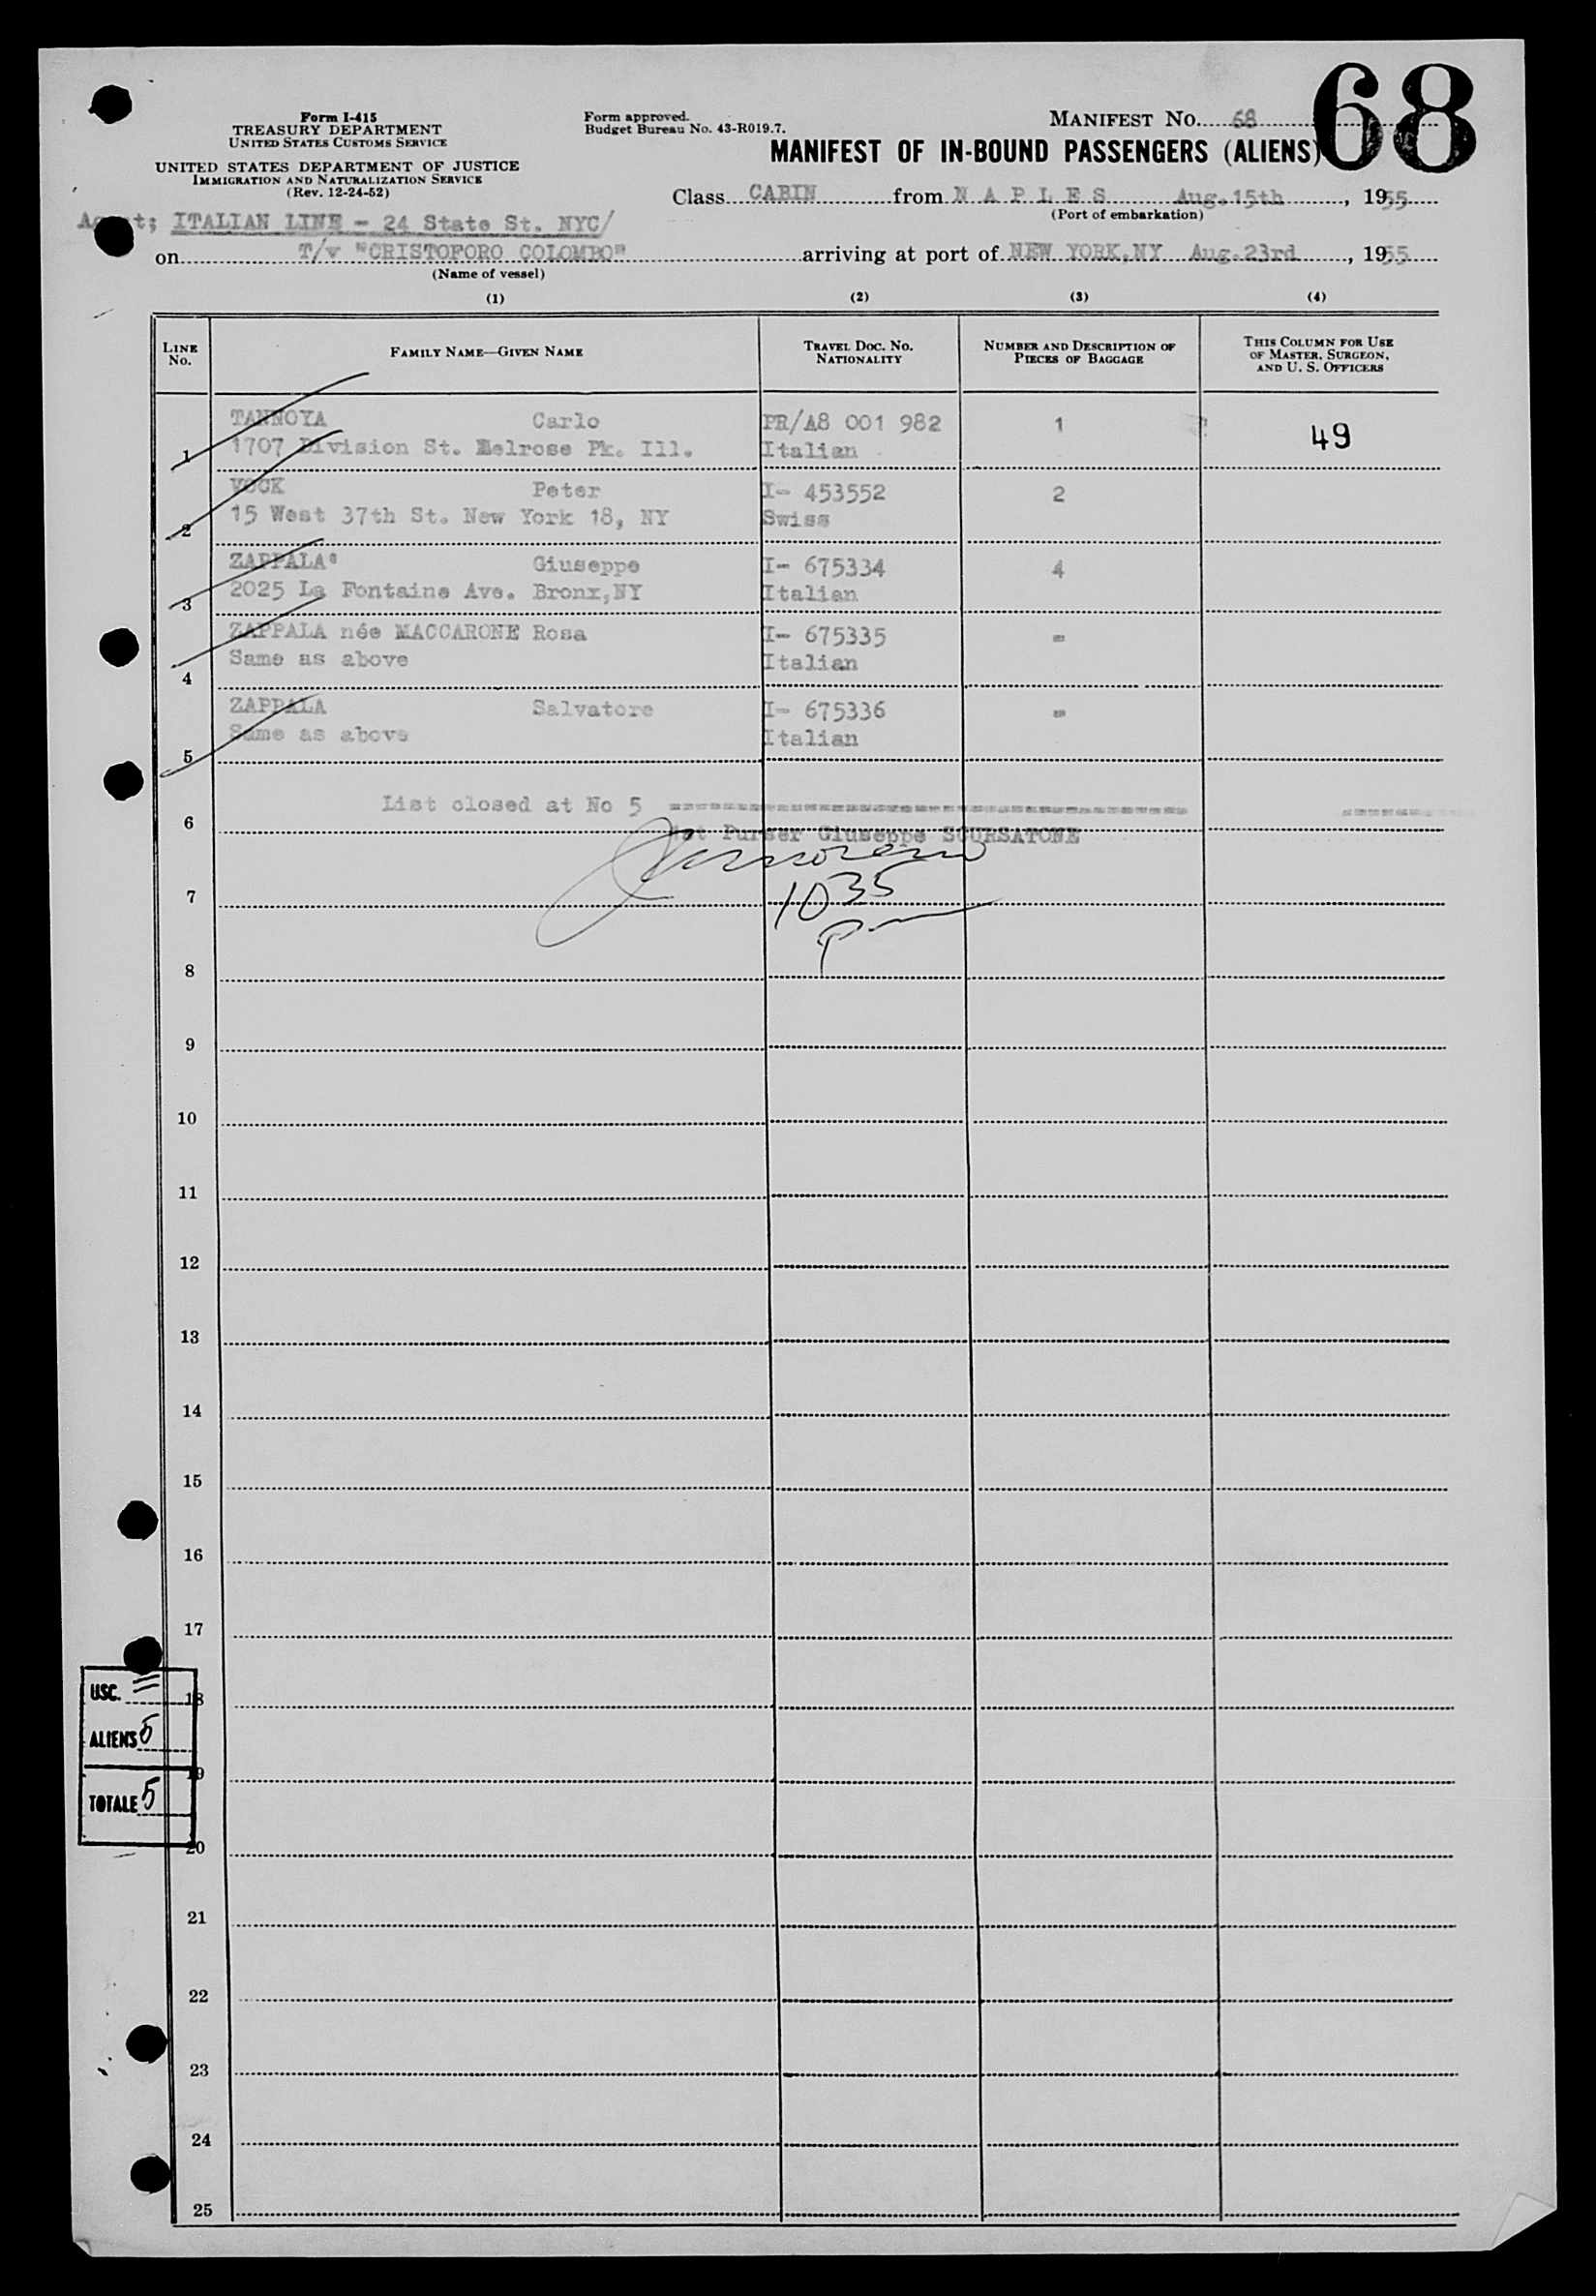 68
Form I-415
TREASURY DEPARTMENT
UNITED STATES CUSTOMS SERVICE
UNITED STATES DEPARTMENT OF JUSTICE
IMMIGRATION AND NATURALIZATION SERVICE
(Rev. 12-24-52)
Form approved.
Budget Bureau No. 43-R019.7.
MANIFEST NO. 68
MANIFEST OF IN-BOUND PASSENGERS (ALIENS)
Class CABIN from N A P L E S Aug.15th, 1955
(Port of embarkation)
ITALIAN LINE - 24 State St. NYC/
on T/v "CRISTOFORO COLOMBO" arriving at port of NEW YORK,NY Aug.23rd, 1955
(Name of vessel)
(1) (2) (3) (4)
LINE No. FAMILY NAME—GIVEN NAME TRAVEL DOC. NO. NATIONALITY NUMBER AND DESCRIPTION OF PIECES OF BAGGAGE THIS COLUMN FOR USE OF MASTER, SURGEON, AND U. S. OFFICERS
TANNOYA Carlo PR/A8 001 982 1 49
1 1707 Division St. Melrose Pk. Ill. Italian
VOCK Peter I- 453552 2
2 15 West 37th St. New York 18, NY Swiss
ZAPPALA' Giuseppe I- 675334 4
3 2025 La Fontaine Ave. Bronx,NY Italian
ZAPPALA née MACCARONE Rosa I- 675335 -
4 Same as above Italian
ZAPPALA Salvatore I- 675336 -
5 Same as above Italian
List closed at No 5
6 Purser Giuseppe SCURSATONE
7 1035
8
9
10
11
12
13
14
15
16
17
18
19
20
21
22
23
24
25
USC. =
ALIENS 5
TOTALE 5